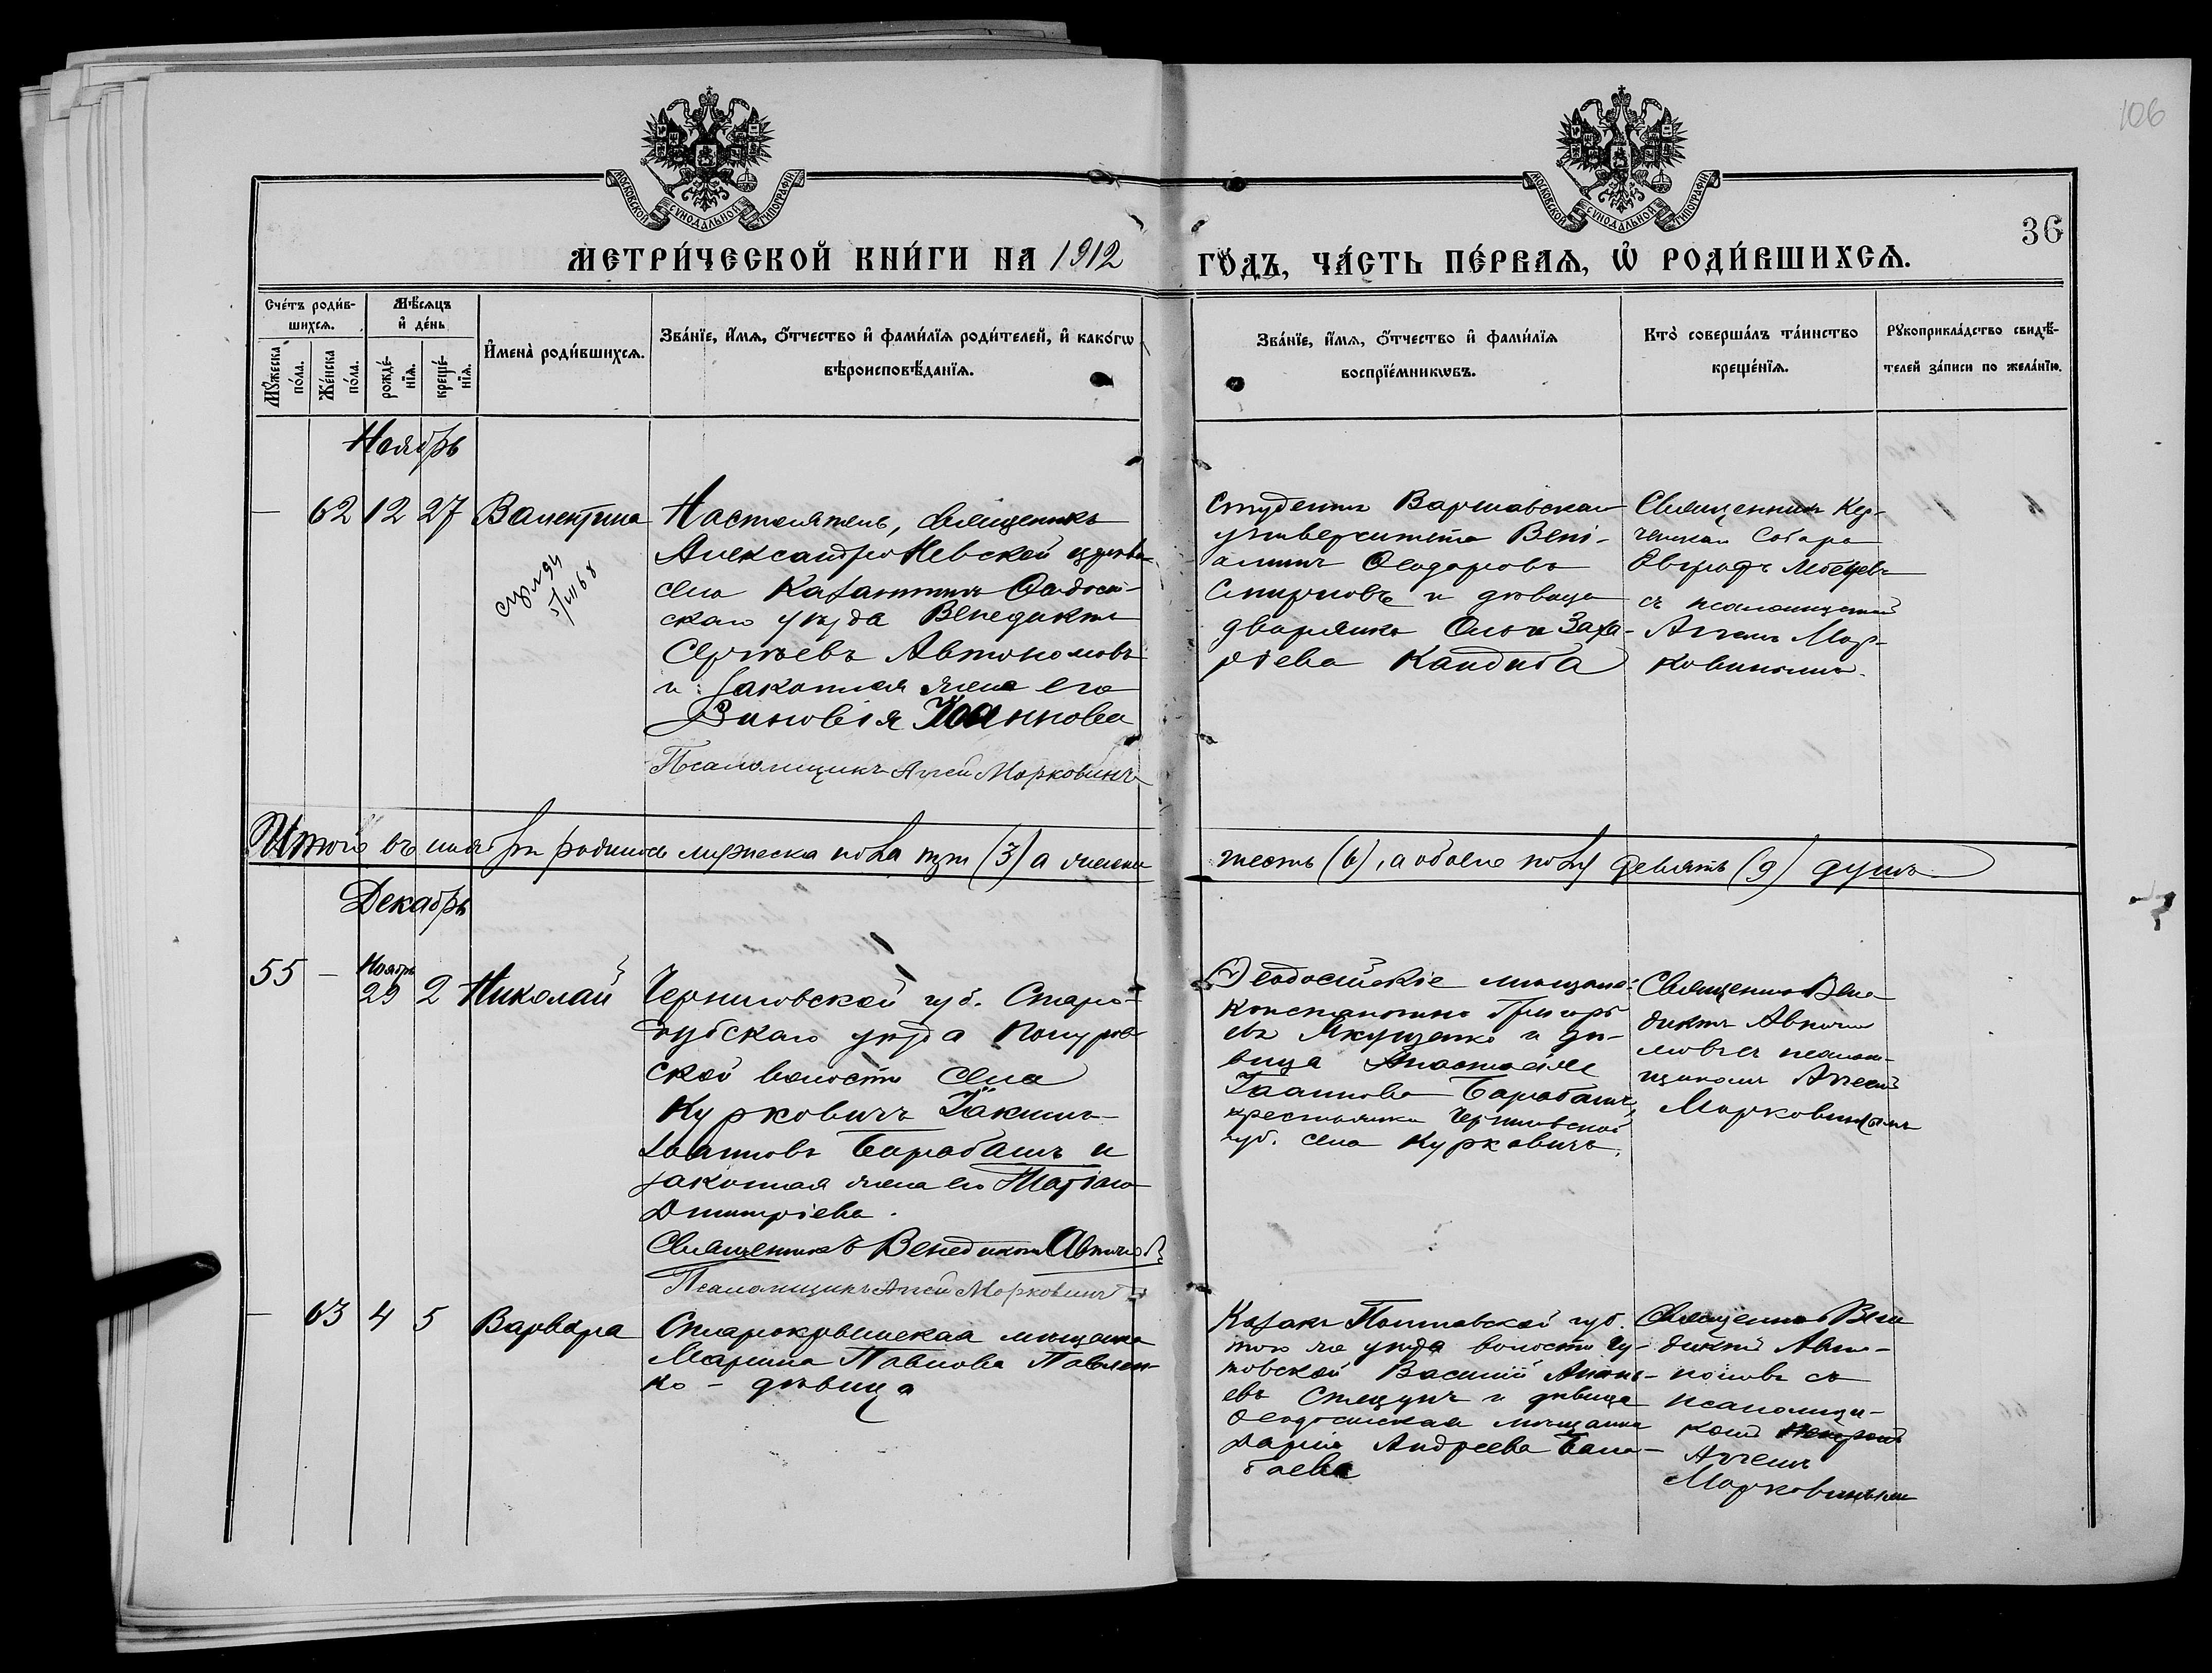 106
МОСКОВСКОЙ СѴНОДАЛЬНОЙ ТИПОГРАФІИ
МОСКОВСКОЙ СѴНОДАЛЬНОЙ ТИПОГРАФІИ
36
МЕТРИ́ЧЕСКОЙ КНИ́ГИ НА 1912
ГО́ДЪ, ЧА́СТЬ ПЕ́РВАѦ, Ѡ҆ РОДИ́ВШИХСѦ.
Сче́тъ роди́в-
шихсѧ.
Мѣ́сѧцъ
и҆ де́нь
И҆мена̀ роди́вшихсѧ.
Зва́нїе, и҆́мѧ, ѻ҆́тчество и҆ фами́лїѧ роди́телей, и҆ како́гѡ
вѣроисповѣ́данїѧ.
Мꙋ́жеска
по́ла.
Же́нска
по́ла.
рожде́-
нїѧ.
креще́-
нїѧ.
Зва́нїе, и҆́мѧ, ѻ҆́тчество и҆ фами́лїѧ
воспрїе́мникѡвъ.
Кто̀ соверша́лъ та́инство
креще́нїѧ.
Рꙋкоприкла́дство свидѣ́-
телей за́писи по жела́нїю.
Ноябрь
— 62 12 27 Валентина
Настоятель, священникъ
Александро Невской церкви
села Казантипъ Ѳеодосій-
скаго уѣзда Венедиктъ
Сергѣевъ Автономовъ
и законная жена его
Зиновія Іоаннова
Псаломщикъ Аггей Морковинъ
Студентъ Варшавскаго
университета Вені-
аминъ Ѳеодоровъ
Смирновъ и дѣвица
дворянка Ольга Заха-
ріева Кандыба
Священникъ Кер-
ченскаго Собора
съ псаломщикомъ
Аггеемъ Мор-
ковинымъ.
Итого въ ноябрѣ родилось мужеска пола три (3) а женска
шесть (6), а обоего полу девять (9) душъ
Декабрь
55 — Ноябрь
29 2 Николай
Черниговской губ. Старо-
дубскаго уѣзда Понуров-
ской волости села
Курковичъ Іакимъ
Іоанновъ Барабашъ и
законная жена его Татіана
Димитріева.
Священникъ Венедиктъ Автономовъ
Псаломщикъ Аггей Морковинъ
Ѳеодосійскіе мѣщане:
Константинъ Григорь-
евъ Якущенко и дѣ-
вица Анастасія
Іоаннова Барабашъ,
крестьянка Черниговской
губ. села Курковичъ.
Священникъ Вене-
диктъ Автоно-
мовъ съ псалом-
щикомъ Аггеемъ
Морковинымъ
— 63 4 5 Варвара
Старокрымская мѣщанка
Марина Павлова Павлен-
ко – дѣвица
Казакъ Полтавской губ.
того же уѣзда волости Чу-
товской Василій Анань-
евъ Стецунъ и дѣвица
Ѳеодосійская мѣщанка
Дарія Андреева Бала-
баева
Священникъ Вене-
диктъ Авто-
номовъ съ
псаломщи-
комъ
Аггеемъ
Морковинымъ